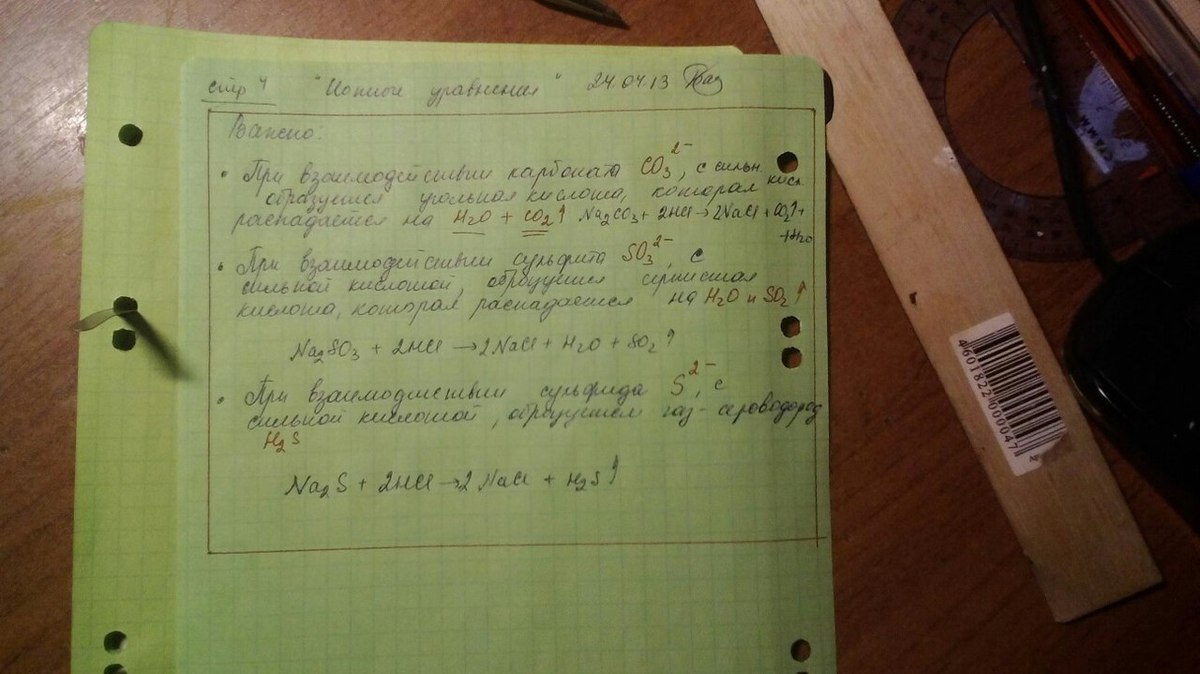 стр 4 "Ионные уравнения" 24.04.13
Важно:
• При взаимодействии карбоната CO₃²⁻, с сильн. кисл.
образуется угольная кислота, которая
распадается на H₂O + CO₂↑ Na₂CO₃ + 2HCl → 2NaCl + CO₂↑ +
+ H₂O
• При взаимодействии сульфита SO₃²⁻, с
сильной кислотой, образуется сернистая
кислота, которая распадается на H₂O и SO₂↑
Na₂SO₃ + 2HCl → 2NaCl + H₂O + SO₂↑
• При взаимодействии сульфида S²⁻, с
сильной кислотой, образуется газ - сероводород
H₂S
Na₂S + 2HCl → 2NaCl + H₂S↑
4601822000047